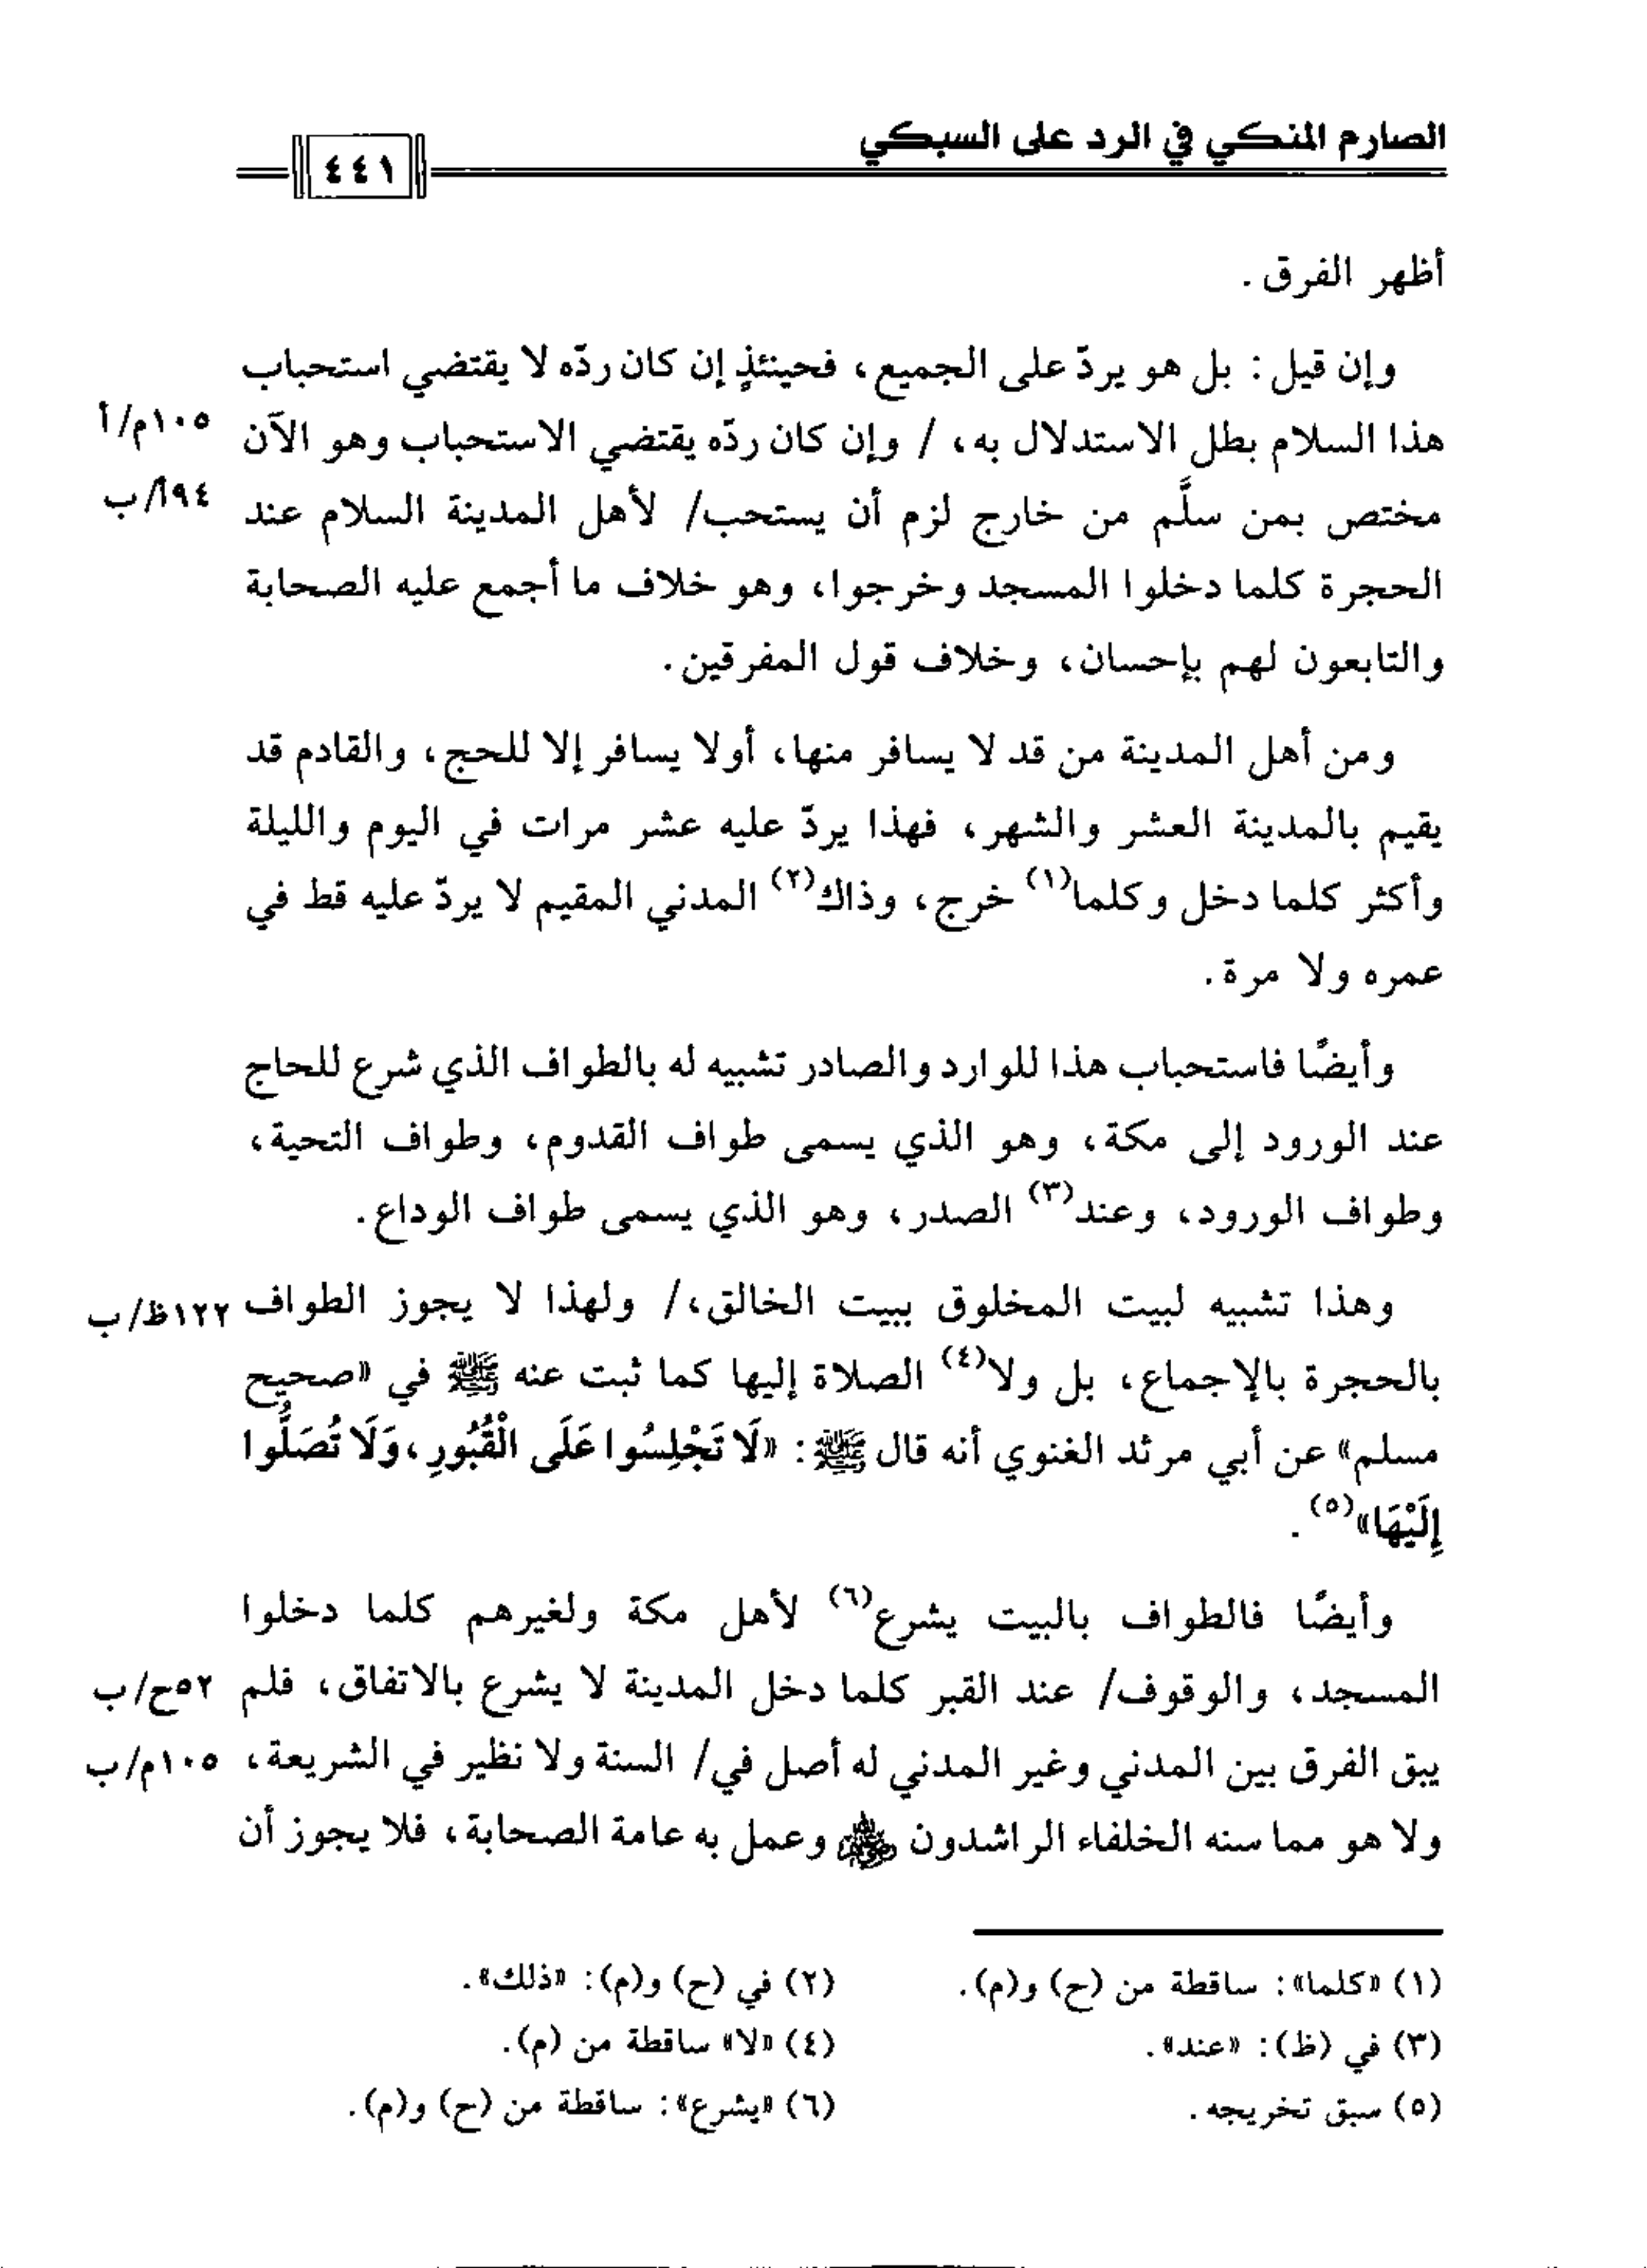 الصارم المنكي في الرد على السبكي
٤٤١
أظهر الفرق.
وإن قيل: بل هو يردّ على الجميع، فحينئذٍ إن كان ردّه لا يقتضي استحباب
هذا السلام بطل الاستدلال به، / وإن كان ردّه يقتضي الاستحباب وهو الآن
١٠٥م/أ
مختص بمن سلَّم من خارج لزم أن يستحب/ لأهل المدينة السلام عند
٩٤أ/ب
الحجرة كلما دخلوا المسجد وخرجوا، وهو خلاف ما أجمع عليه الصحابة
والتابعون لهم بإحسان، وخلاف قول المفرقين.
ومن أهل المدينة من قد لا يسافر منها، أولا يسافر إلا للحج، والقادم قد
يقيم بالمدينة العشر والشهر، فهذا يردّ عليه عشر مرات في اليوم والليلة
وأكثر كلما دخل وكلما(١) خرج، وذاك(٢) المدني المقيم لا يردّ عليه قط في
عمره ولا مرة.
وأيضًا فاستحباب هذا للوارد والصادر تشبيه له بالطواف الذي شرع للحاج
عند الورود إلى مكة، وهو الذي يسمى طواف القدوم، وطواف التحية،
وطواف الورود، وعند(٣) الصدر، وهو الذي يسمى طواف الوداع.
وهذا تشبيه لبيت المخلوق ببيت الخالق،/ ولهذا لا يجوز الطواف
١٢٢ظ/ب
بالحجرة بالإجماع، بل ولا(٤) الصلاة إليها كما ثبت عنه ﷺ في «صحيح
مسلم» عن أبي مرثد الغنوي أنه قال ﷺ: «لَا تَجْلِسُوا عَلَى الْقُبُورِ، وَلَا تُصَلُّوا
إِلَيْهَا»(٥).
وأيضًا فالطواف بالبيت يشرع(٦) لأهل مكة ولغيرهم كلما دخلوا
المسجد، والوقوف/ عند القبر كلما دخل المدينة لا يشرع بالاتفاق، فلم
٥٢ح/ب
يبق الفرق بين المدني وغير المدني له أصل في/ السنة ولا نظير في الشريعة،
١٠٥م/ب
ولا هو مما سنه الخلفاء الراشدون ﵃ وعمل به عامة الصحابة، فلا يجوز أن
(١) «كلما»: ساقطة من (ح) و(م).
(٢) في (ح) و(م): «ذلك».
(٣) في (ظ): «عند».
(٤) «لا» ساقطة من (م).
(٥) سبق تخريجه.
(٦) «يشرع»: ساقطة من (ح) و(م).